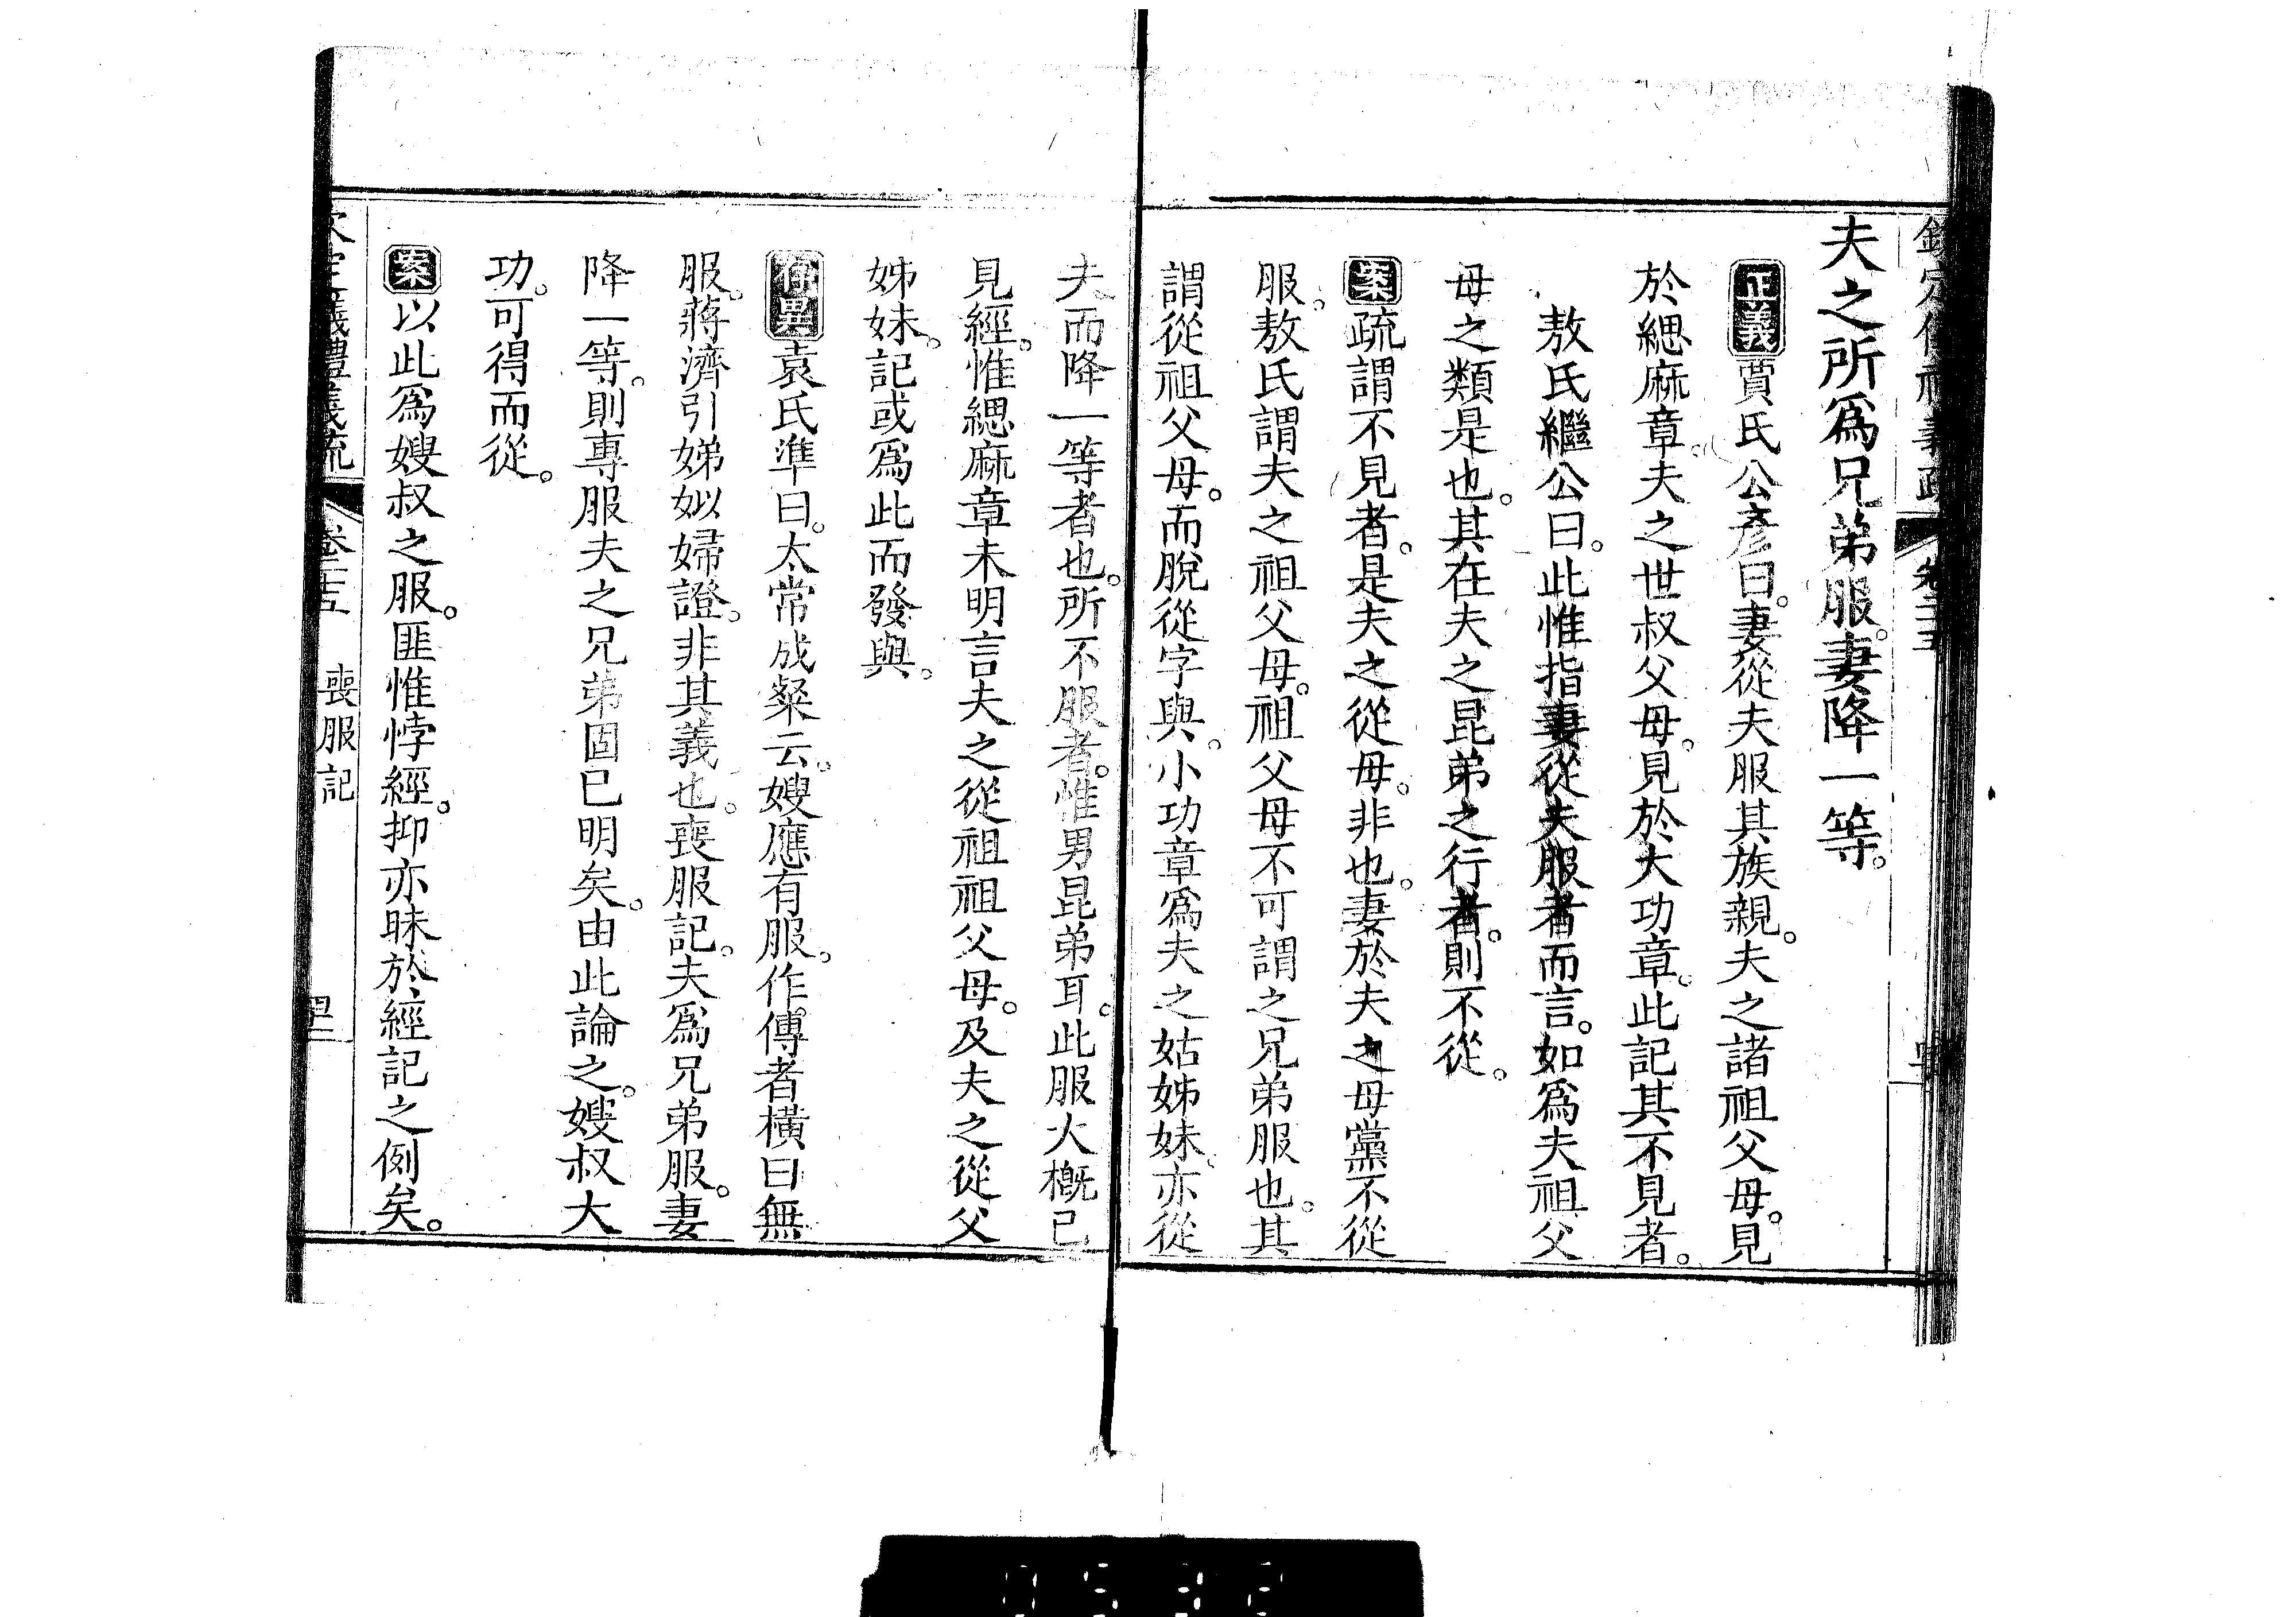 夫之所爲兄弟服。妻降一等。
正義賈氏公彥曰。妻從夫服其族親。夫之諸祖父母。見
於緦麻章。夫之世叔父母。見於大功章。此記其不見者。
敖氏繼公曰。此惟指妻從夫服者而言。如爲夫祖父
母之類是也。其在夫之昆弟之行者。則不從。
案疏謂不見者。是夫之從母。非也。妻於夫之母黨不從
服。敖氏謂夫之祖父母。祖父母不可謂之兄弟服也。其
謂從祖父母。而脫從字與。小功章爲夫之姑姊妹。亦從
夫而降一等者也。所不服者。惟男昆弟耳。此服大概已
見經。惟緦麻章未明言夫之從祖祖父母。及夫之從父
姊妹。記或爲此而發與。
存異袁氏準曰。太常成粲云。嫂應有服。作傳者橫曰無
服。蔣濟引娣姒婦證。非其義也。喪服記。夫爲兄弟服。妻
降一等。則專服夫之兄弟固已明矣。由此論之。嫂叔大
功。可得而從。
案以此爲嫂叔之服。匪惟悖經。抑亦昧於經記之例矣。
喪服記